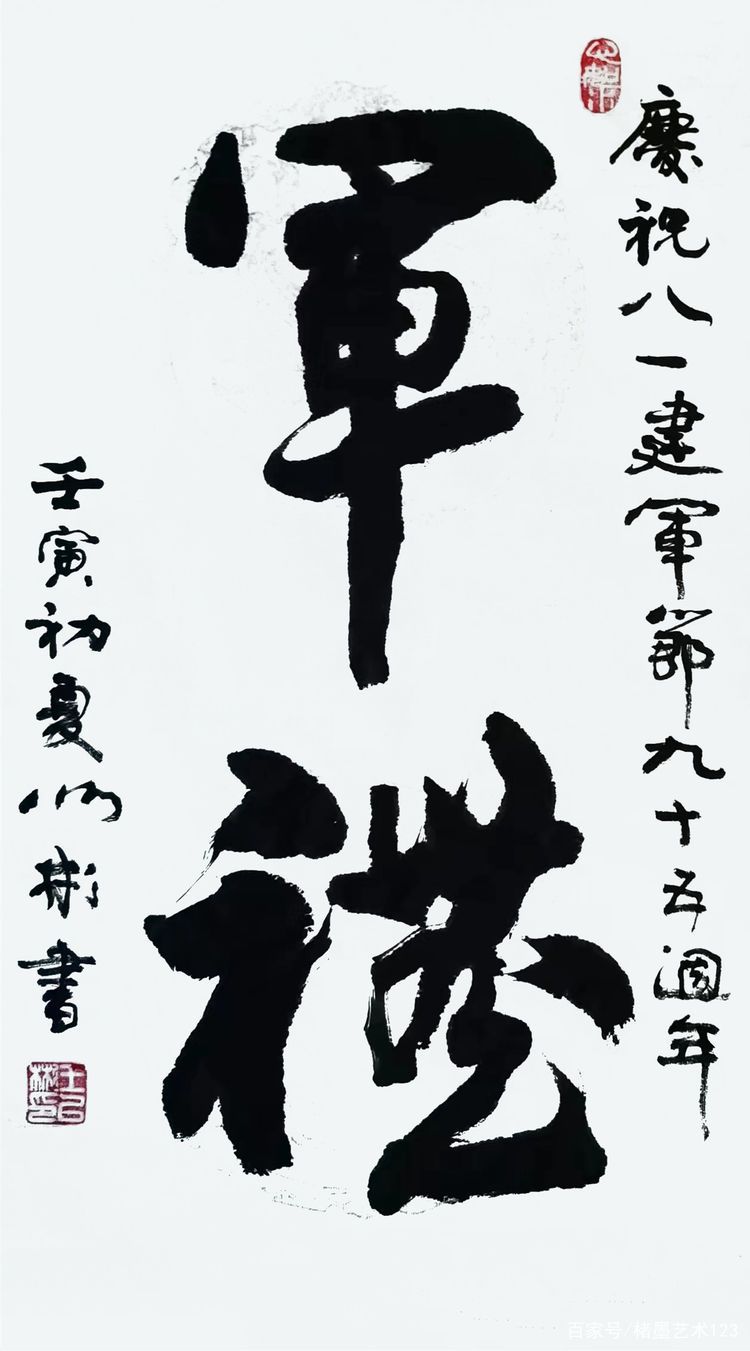 慶祝八一建軍節九十五週年
軍禮
壬寅初夏彬書
百家号/楮墨艺术123